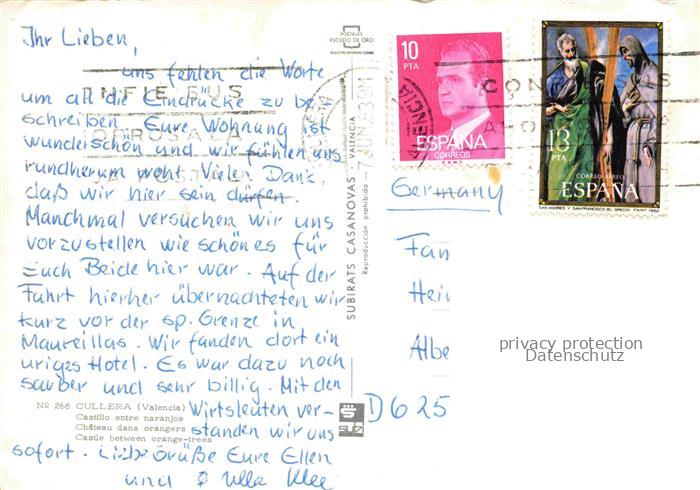 Ihr Lieben,
uns fehlen die Worte
um all die Eindrücke zu be-
schreiben. Eure Wohnung ist
wunderschön und wir fühlen uns
rundherum wohl. Vielen Dank,
daß wir hier sein dürfen.
Manchmal versuchen wir uns
vorzustellen wie schön es für
Euch Beide hier war. Auf der
Fahrt hierher übernachteten wir
kurz vor der sp. Grenze in
Maureillas. Wir fanden dort ein
uriges Hotel. Es war dazu noch
sauber und sehr billig. Mit den
Wirtsleuten ver-
standen wir uns
sofort. Liebe Grüße Eure Ellen
und Ulla Klee
Nº 268 CULLERA (Valencia)
Castillo entre naranjos
Château dans orangers
Castle between orange-trees
POSTALES
ESCUDO DE ORO
SUBIRATS CASANOVAS - VALENCIA
Reproducción prohibida
10
PTA
ESPAÑA
CORREOS
13
PTA
CORREO AEREO
ESPAÑA
SAN ANDRES Y SAN FRANCISCO (EL GRECO) F.N.M.T. 1982
Germany
Fam
Hei
Albe
D 6 25
privacy protection
Datenschutz